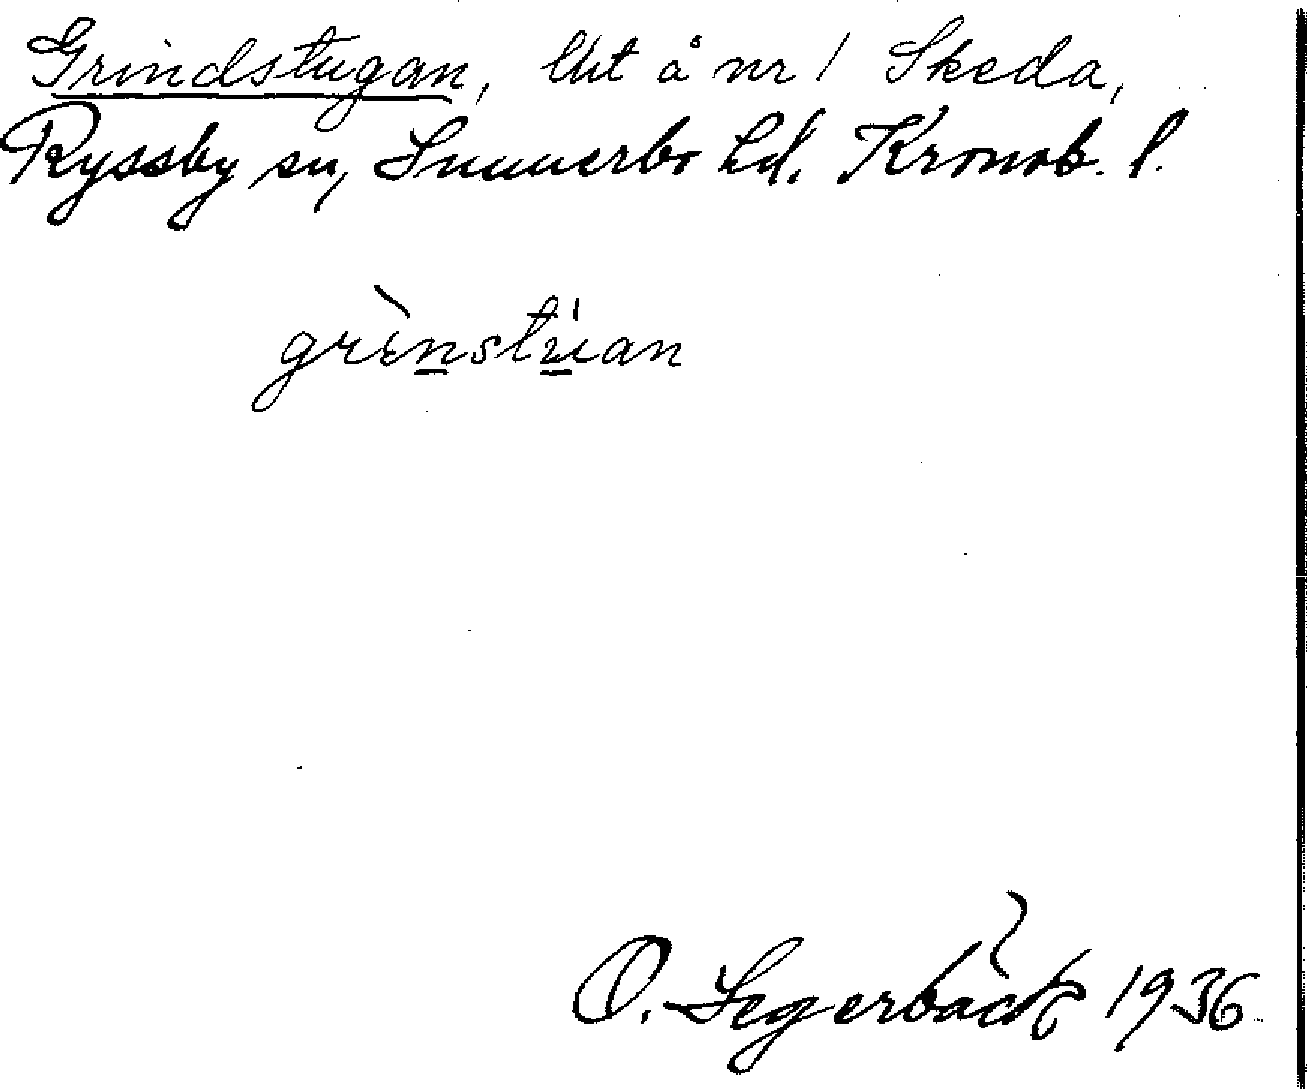 Grindstugan, lht å nr 1 Skeda,
Ryssby sn, Sunnerbo hd. Kronob. l.
grènstúan
O. Segerbäck 1936